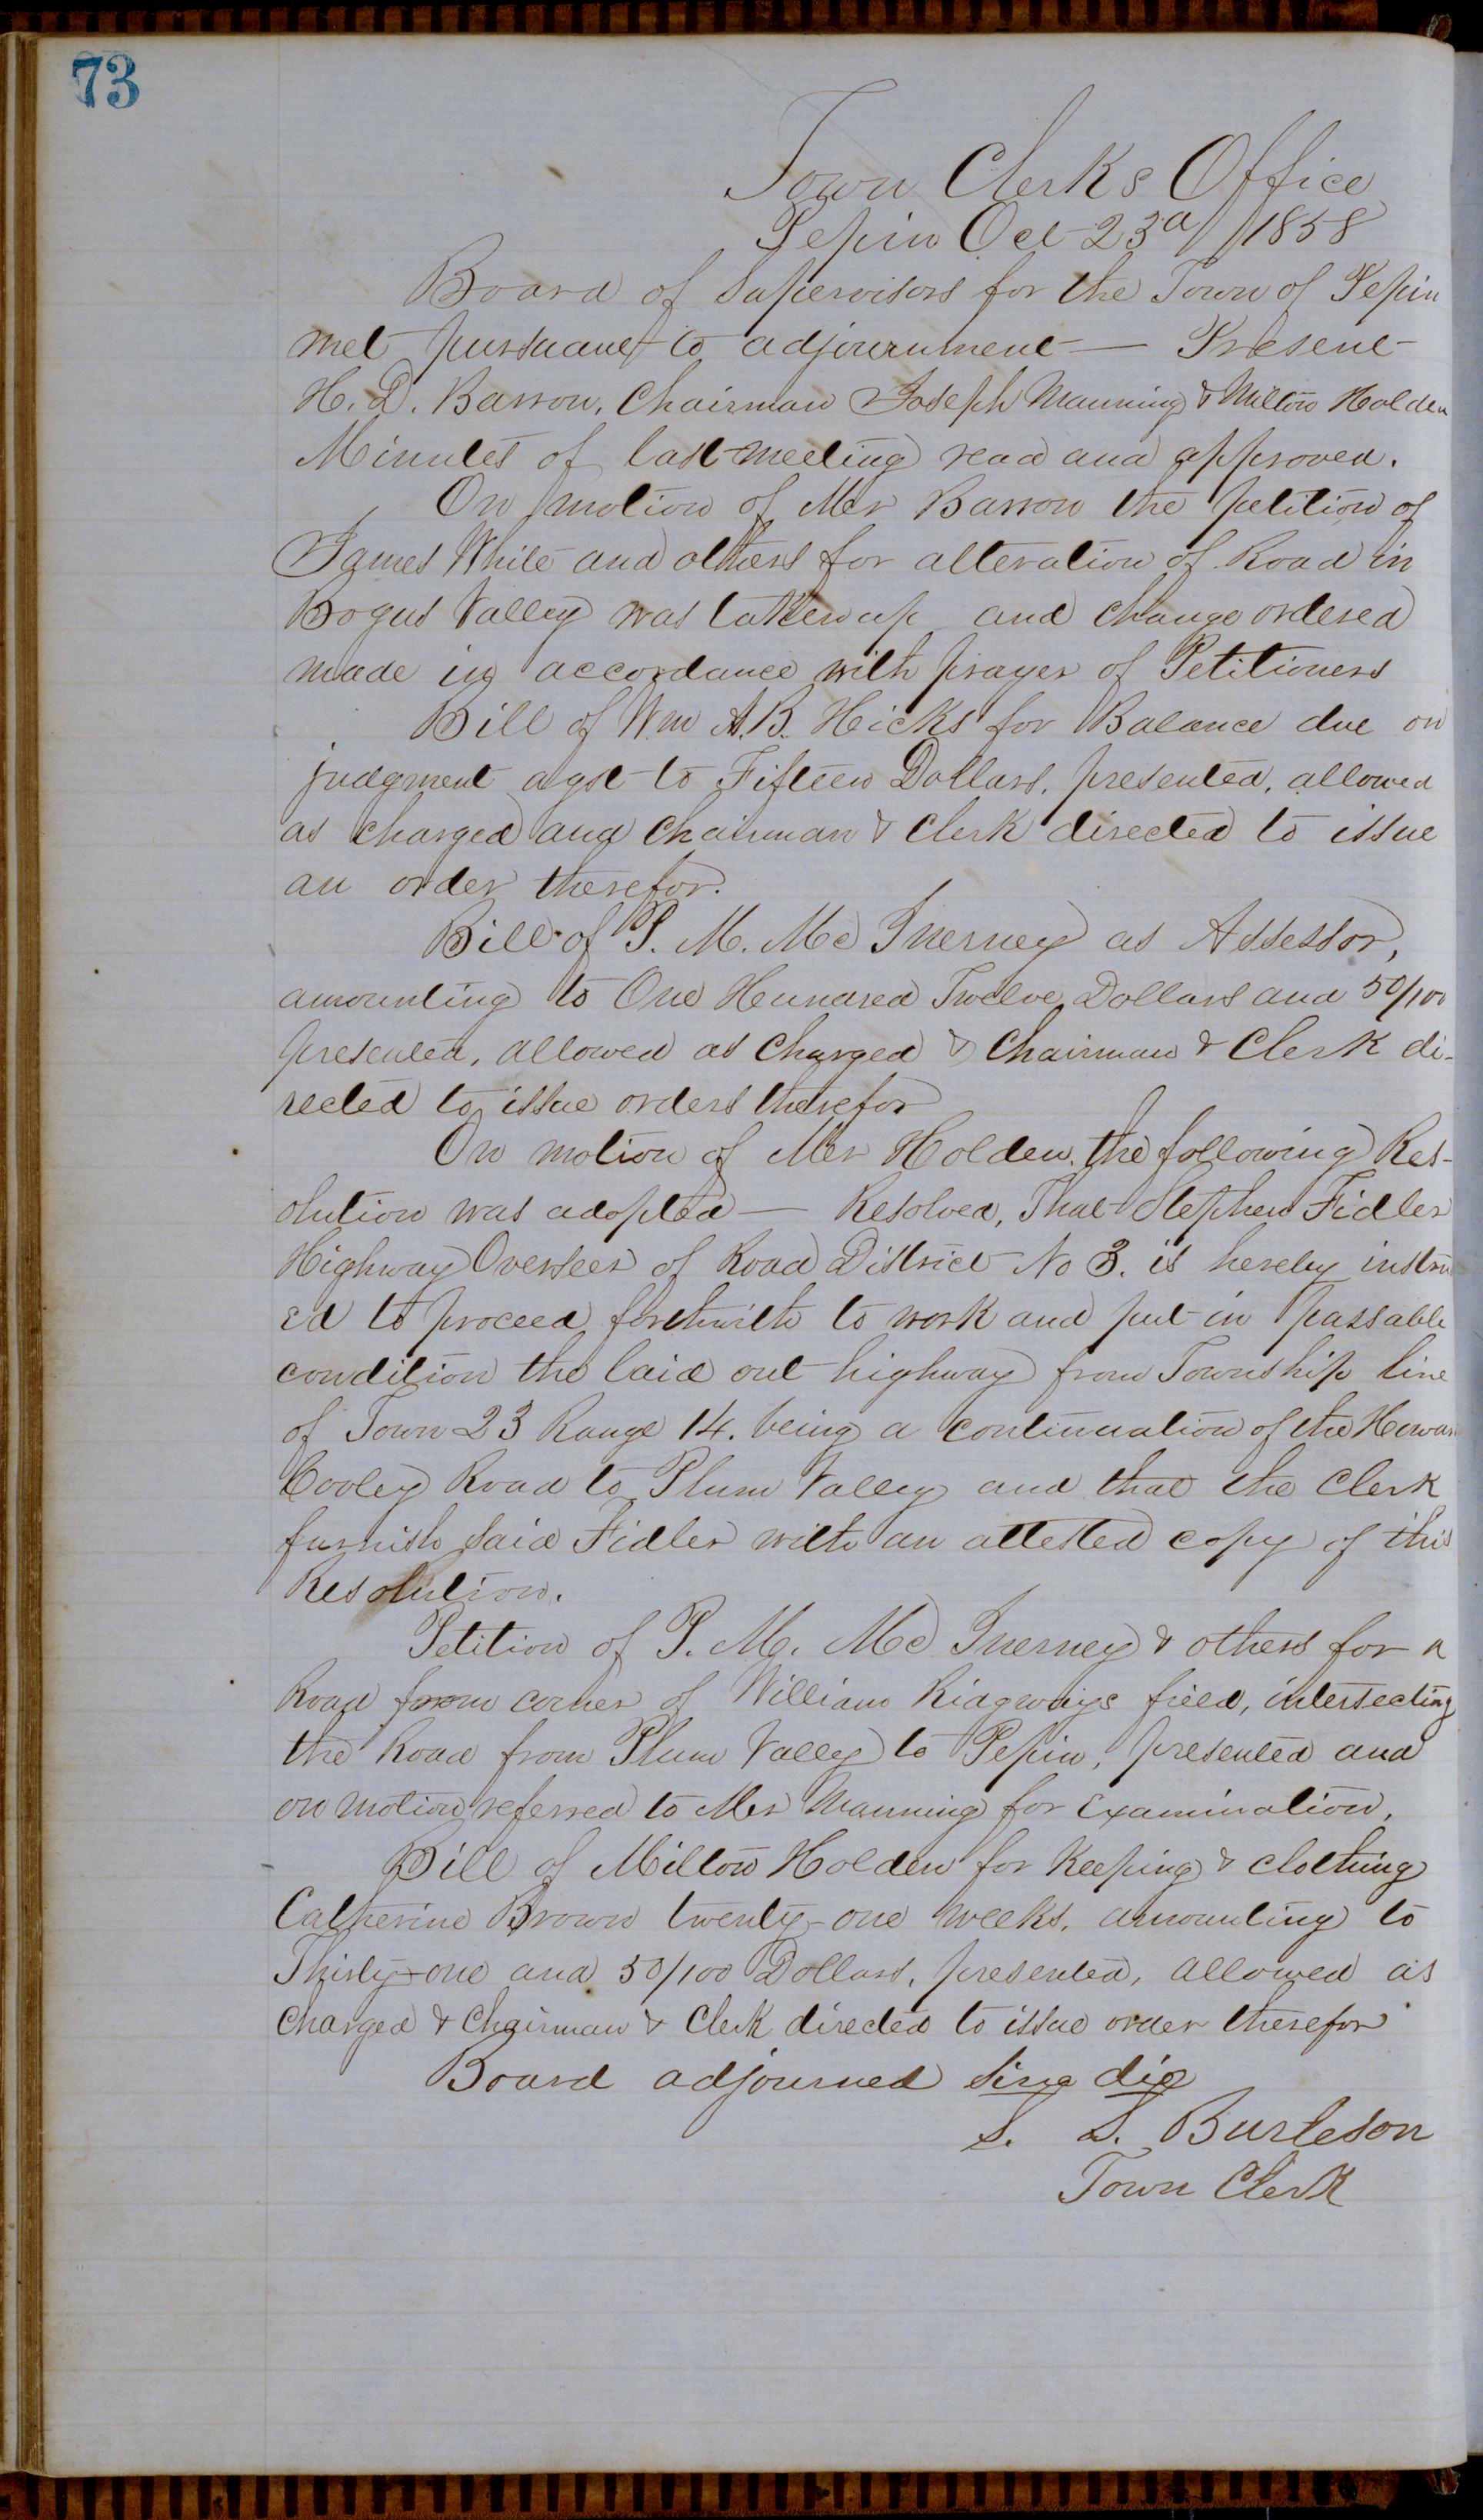 73
Town Clerks Office
Pepin Oct 23d / 1858
Board of Supervisors for the Town of Pepin
met pursuant to adjournment — Present
H. D. Barron, Chairman Joseph Manning & Milton Holden
Minutes of last meeting read and approved.
On motion of Mr Barron the petition of
James White and others for alteration of Road in
Bogus Valley was taken up and change ordered
made in accordance with prayer of Petitioners
Bill of Wm A. B. Hicks for Balance due on
judgment agst to Fifteen Dollars, presented, allowed
as charged and Chairman & Clerk directed to issue
an order therefor.
Bill of P. M. Mc Inerney as Assessor,
amounting to One Hundred Twelve Dollars and 50/100
presented, allowed as charged & Chairman & Clerk di-
rected to issue orders therefor
On motion of Mr Holden, the following Res-
olution was adopted — Resolved, That Stephen Fidler
Highway Overseer of Road District No 3. is hereby instru
ed to proceed forthwith to work and put in passable
condition the laid out highway from Township line
of Town 23 Range 14. being a continuation of the
Cooley Road to Plum Valley and that the Clerk
furnish said Fidler with an attested copy of this
Resolution.
Petition of P. M. Mc Inerney & others for a
Road from corner of William Ridgways field, intersecting
the Road from Plum Valley to Pepin, presented and
on motion referred to Mr Manning for Examination.
Bill of Milton Holden for Keeping & clothing
Catherine Brown twenty-one weeks, amounting to
Thirty-one and 50/100 Dollars, presented, allowed as
charged & Chairman & Clerk directed to issue order therefor
Board adjourned sine die
S. S. Burleson
Town Clerk